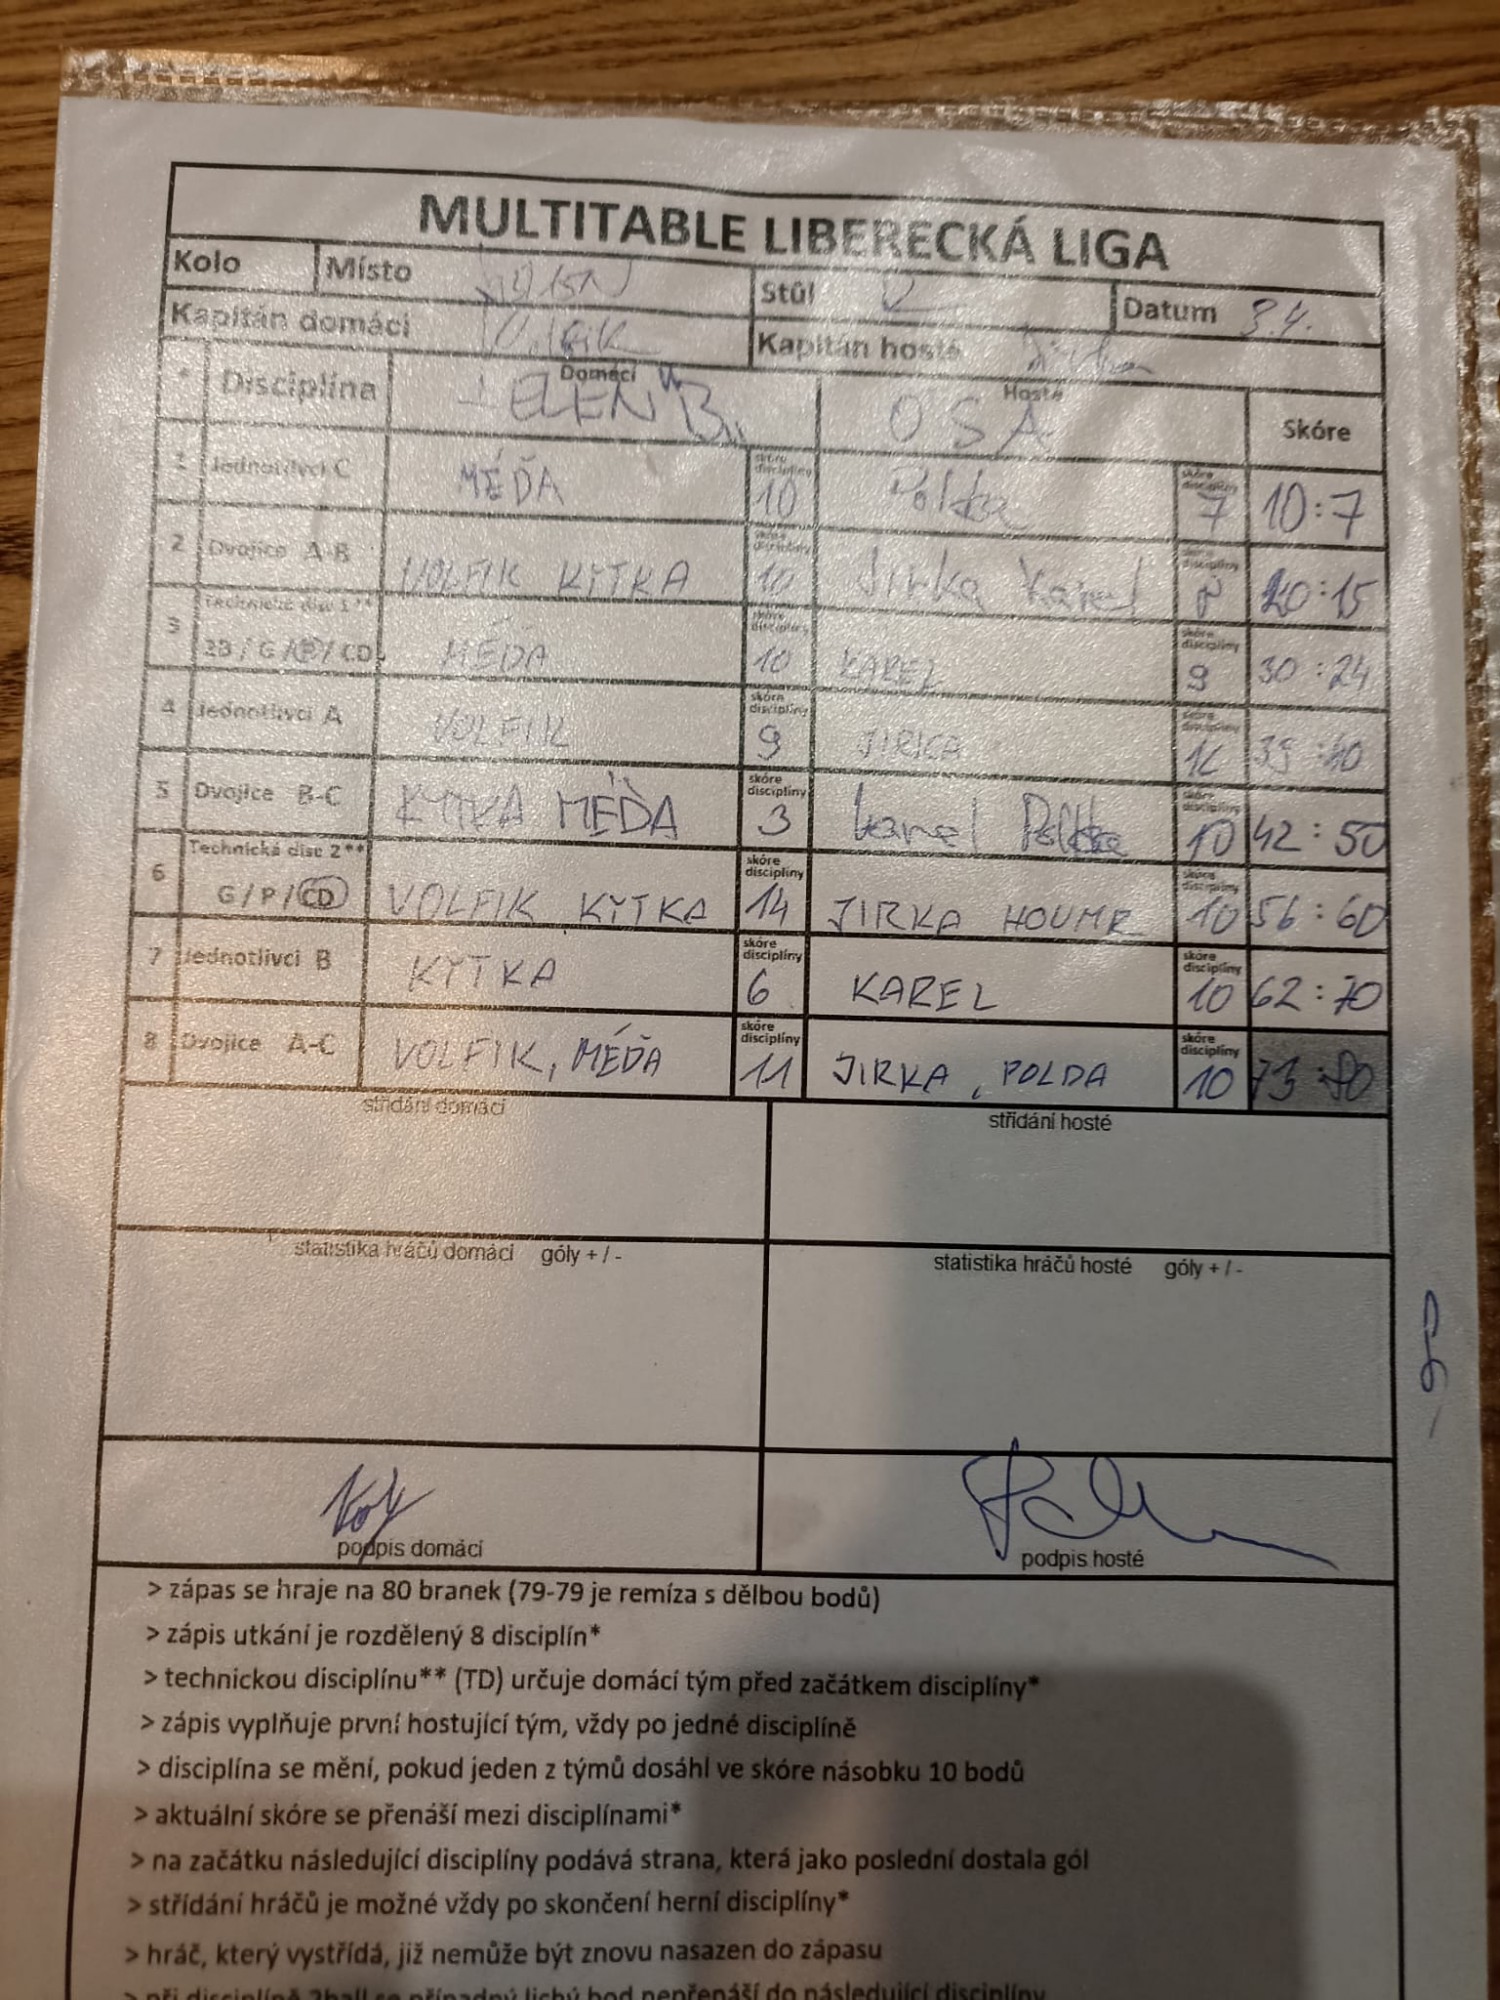 MULTITABLE LIBERECKÁ LIGA
Kolo Místo Stůl Datum 3.4.
Kapitán domácí Volfik Kapitán hosté Jirka
* Disciplína Domácí JELEN "B" Hosté OSA Skóre
1 Jednotlivci C MÉĎA skóre disciplíny 10 Polda skóre disciplíny 7 10:7
2 Dvojice A-B VOLFIK KYTKA skóre disciplíny 10 Jirka Karel skóre disciplíny 8 20:15
3 Technická disc 1** 2B / G / P / CD MÉĎA skóre disciplíny 10 KAREL skóre disciplíny 9 30:24
4 Jednotlivci A VOLFIK skóre disciplíny 9 JIRKA skóre disciplíny 16 39:40
5 Dvojice B-C KYTKA MÉĎA skóre disciplíny 3 karel Polda skóre disciplíny 10 42:50
6 Technická disc 2** G / P / CD VOLFIK KYTKA skóre disciplíny 14 JIRKA HOUMR skóre disciplíny 10 56:60
7 Jednotlivci B KYTKA skóre disciplíny 6 KAREL skóre disciplíny 10 62:70
8 Dvojice A-C VOLFIK, MÉĎA skóre disciplíny 11 JIRKA, POLDA skóre disciplíny 10 73:80
střídání domácí střídání hosté
statistika hráčů domácí góly + / - statistika hráčů hosté góly + / -
podpis domácí podpis hosté
> zápas se hraje na 80 branek (79-79 je remíza s dělbou bodů)
> zápis utkání je rozdělený 8 disciplín*
> technickou disciplínu** (TD) určuje domácí tým před začátkem disciplíny*
> zápis vyplňuje první hostující tým, vždy po jedné disciplíně
> disciplína se mění, pokud jeden z týmů dosáhl ve skóre násobku 10 bodů
> aktuální skóre se přenáší mezi disciplínami*
> na začátku následující disciplíny podává strana, která jako poslední dostala gól
> střídání hráčů je možné vždy po skončení herní disciplíny*
> hráč, který vystřídá, již nemůže být znovu nasazen do zápasu
> při disciplíně 2ball se případný lichý bod nepřenáší do následující disciplíny